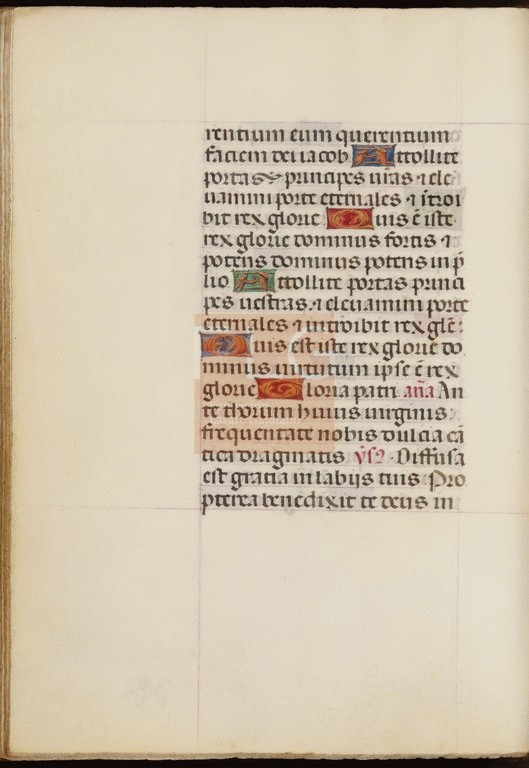 rentium eum querentium
faciem dei iacob Attollite
portas principes ur̃as ⁊ ele
uamini porte eternales ⁊ ĩtroi
bit rex glorie Quis ẽ iste
rex glorie dominus fortis ⁊
potens dominus potens in p̃
lio Attollite portas princi
pes uestras ⁊ eleuamini porte
eternales ⁊ introibit rex glẽ:
Quis est iste rex glorie do
minus uirtutum ipse ẽ rex
glorie Gloria patri añа An
te thorum huius uirginis
frequentate nobis dulcia cã
tica dragmatis v̉s? Diffusa
est gratia in labijs tuis Pro
pterea benedixit te deus in